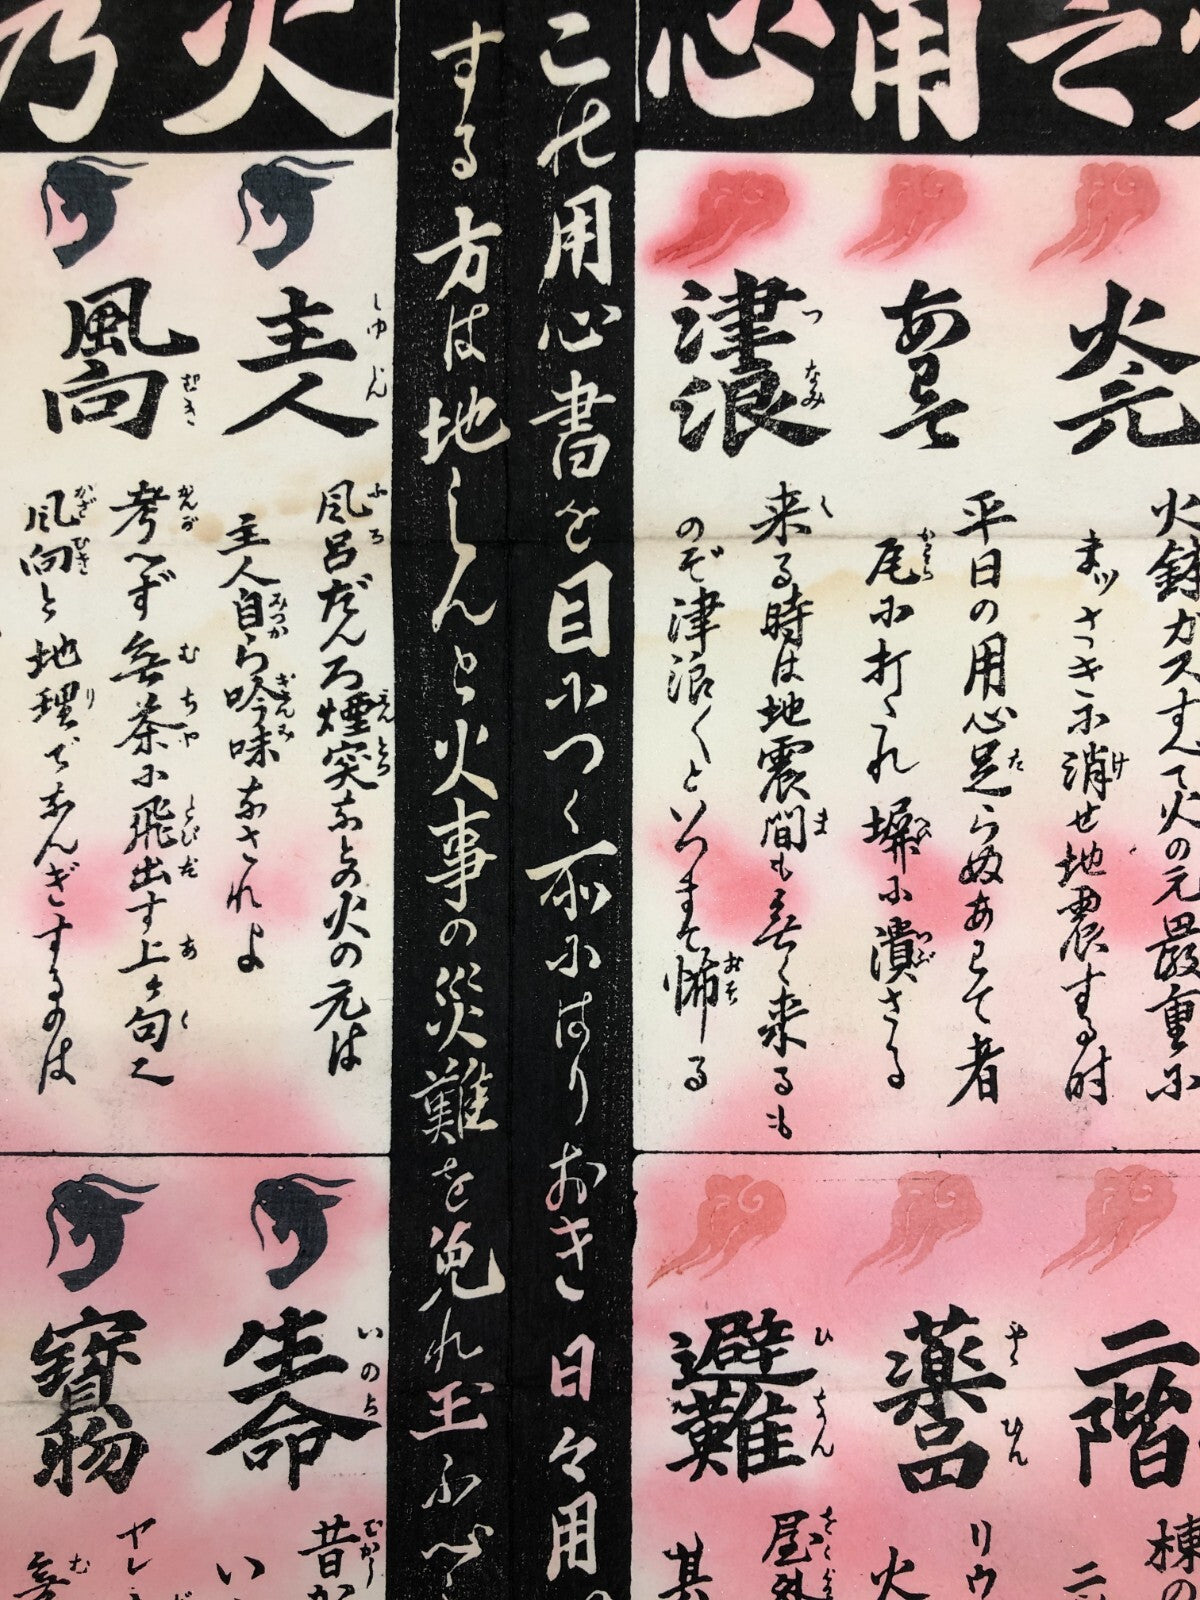 之用心
火乃
火元
火鉢ガスすべて火の元最重に
まッさき尓消せ地震する時
あわて
平日の用心足らぬあわて者
尾に打たれ塀に潰さる
津浪
来る時は地震間も無く来るも
のぞ津浪くといつまで怖る
二階
薬品
避難
この用心書を目につく所にはりおき日々用
する方は地しんと火事の災難を免れ玉ふべし
主人
風呂だんろ煙突などの火の元は
主人自ら吟味なされよ
風向
考へず無茶に飛出す上ヶ句に
風向と地理でなんぎするのは
生命
昔か
い
寶物
ヤレ